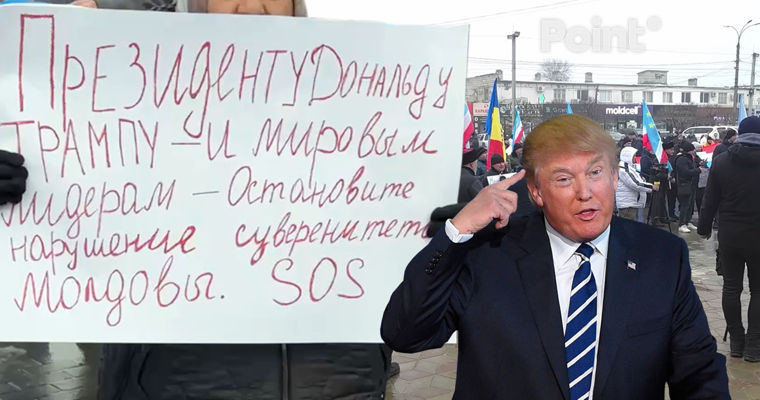 Point
ПРЕЗИДЕНТУ ДОНАЛЬДУ
ТРАМПУ – И мировым
лидерам – Остановите
нарушение суверенитета
Молдовы. SOS
moldcell